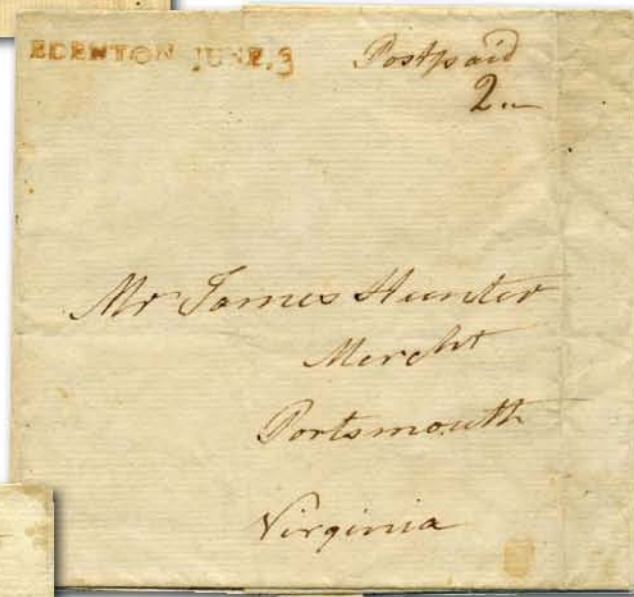 EDENTON JUNE.3 Postpaid
2..
Mr James Hunter
Mercht
Portsmouth
Virginia